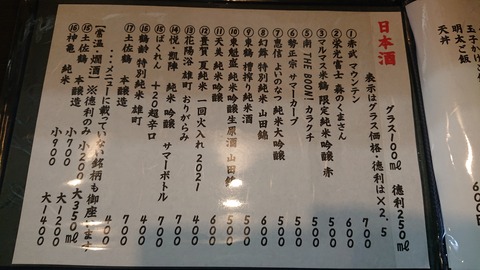 玉子かけ
明太ご飯
天丼
日本酒 グラス100ml 徳利250ml
表示はグラス価格・徳利は×2.5
①赤武 マウンテン 700
②栄光冨士 森のくまさん 600
③マルマス米鶴 限定純米吟醸 赤 500
④勢正宗 サマーカープ 500
⑤南 THE BOOM! カラクチ 500
⑦恵信 よいのなつ 純米大吟醸 700
⑧幻舞 特別純米 山田錦 600
⑨東鶴 槽搾り純米酒 500
⑩東魁盛 純米吟醸生原酒 山田錦 500
⑪天美 純米吟醸 600
⑫豊賀 夏純米 一回火入れ 2021 500
⑬花陽浴 雄町 おりがらみ 700
⑭悦・凱陣 純米 吟醸 サマーボトル 700
⑮ばくれん +20超辛口 400
⑯鶴齢 特別純米 雄町
⑰土佐鶴 本醸造 400
…メニューに載っていない銘柄も御座います
【常温・燗酒】※徳利のみ 小200 大350ml
⑮土佐鶴 本醸造 小700 大1200
⑯神亀 純米 小900 大1400